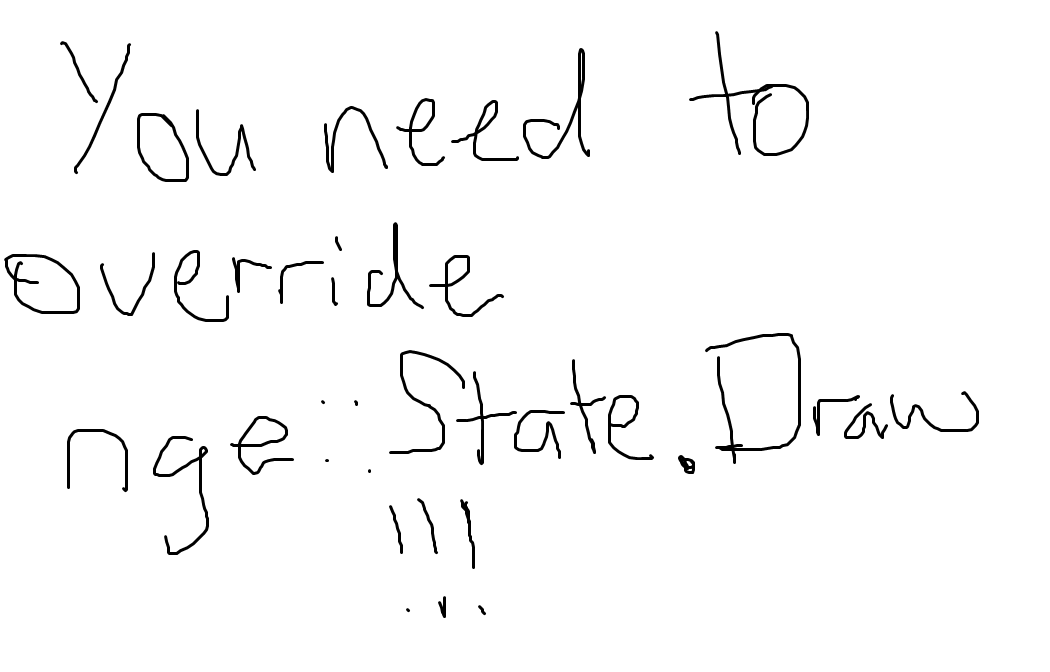 You need to
override
nge::State.Draw
!!!